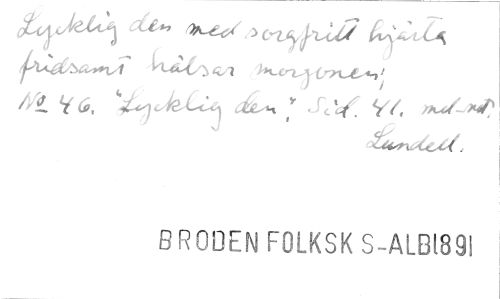 Lycklig den med sorgfritt hjärta
fridsamt hälsar morgonen;
No 46. "Lycklig den", Sid. 41. md-not.
Lundell.
BRODEN FOLKSK S-ALB1891